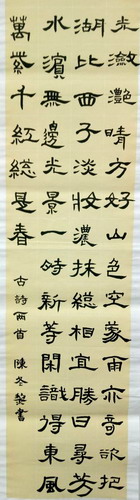 光瀲灩晴方好山色空蒙雨亦奇欲把
湖比西子淡妝濃抹總相宜勝日尋芳
水濱無邊光景一時新等閒識得東風
萬紫千紅總是春
古詩兩首 陳冬黎書